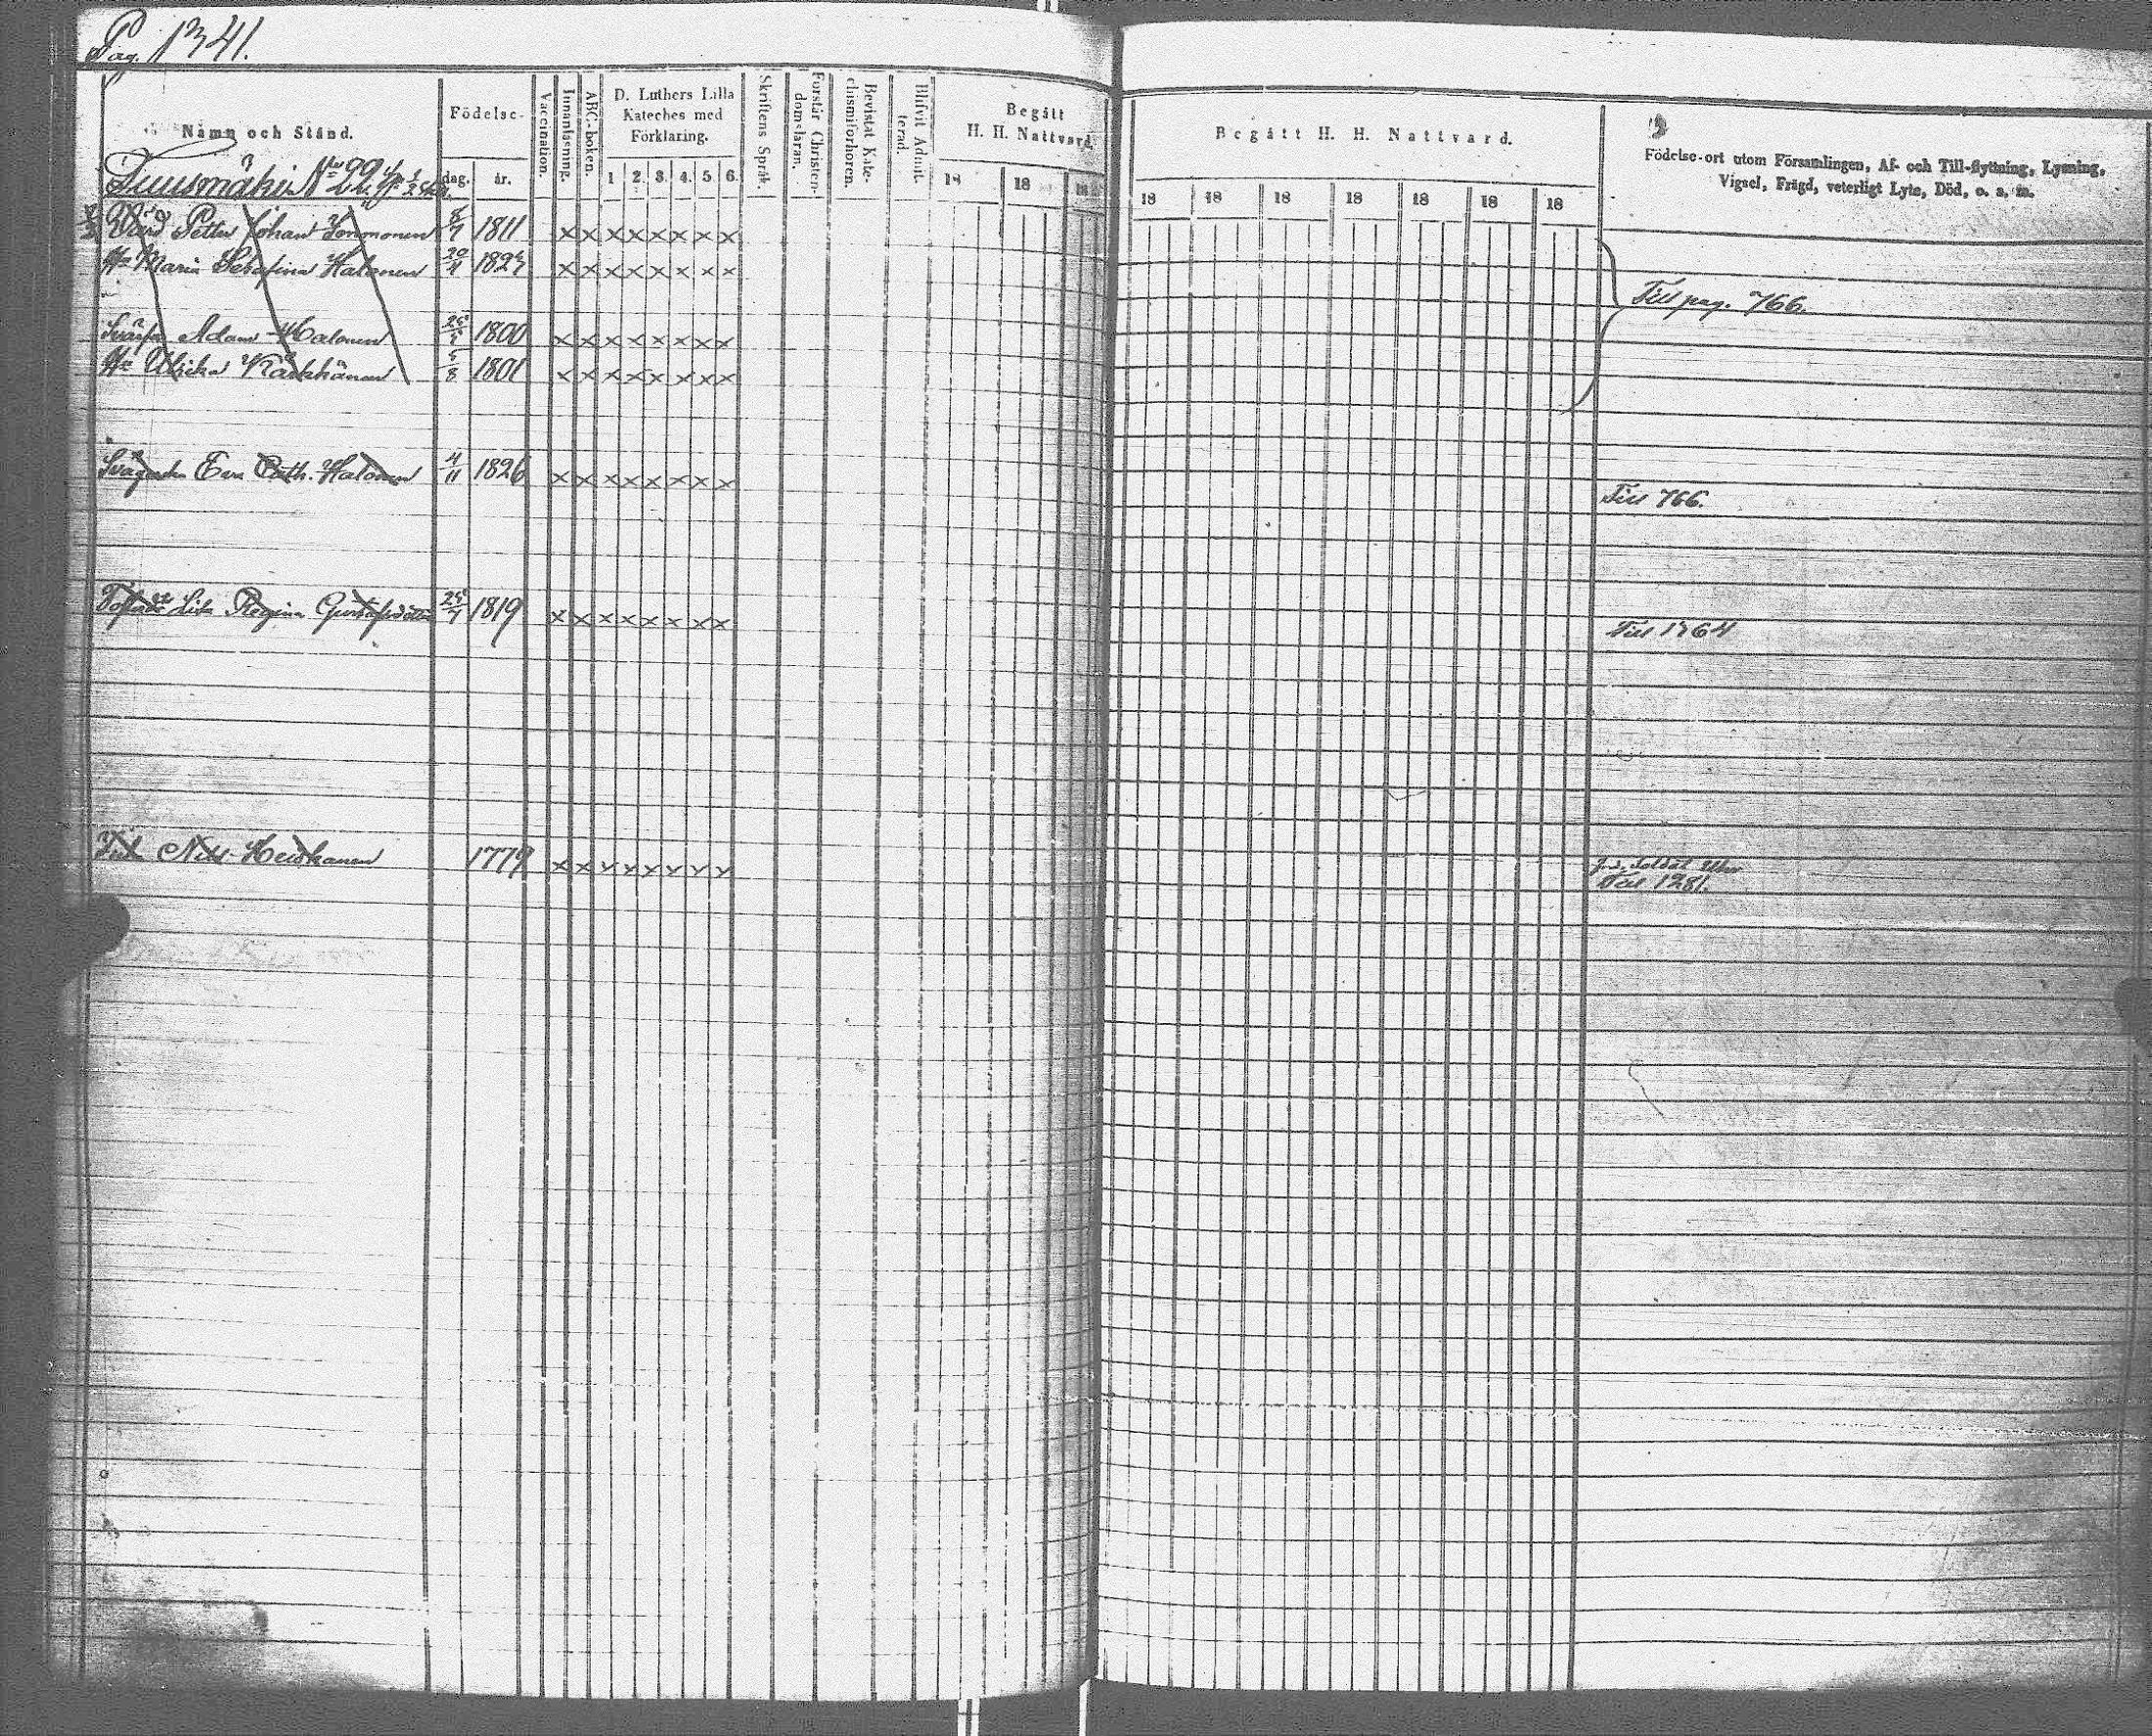 Pag. 1341.
Namn och Stånd.
Födelse-
dag.
år.
Vaccination.
Innanläsning.
ABC-boken.
D. Luthers Lilla
Kateches med
Förklaring.
1 2. 3. 4. 5. 6.
Skriftens Språk.
Förstår Christen-
domsläran.
Bevistat Kate-
chismiförhören.
Blifvit Admit-
terad.
Begått
H. H. Nattvard.
18 18 18
Begått H. H. Nattvard.
18 18 18 18 18 18 18
Födelse-ort utom Församlingen, Af- och Till-flyttning, Lysning,
Vigsel, Frägd, veterligt Lyte, Död, o. s. m.
Tuusmäki No 22
Petter Johan 1811 x x x x x x x x
Hu Maria Serafina Halonen 20/11 182 x x x x x x x x
Till pag. 766.
Adam Halonen 1800 x x x x x x x x
Hu Ulrika Kärkkänen 5/8 1801 x x x x x x x x
Eva Cath. Halonen 4/11 1826 x x x x x x x x
Till 766.
Lisa Regina Gustafsdotter 1819 x x x x x x x x
Till 1764
Nils 1779 x x x x x x x x
Soldat
Till 1281.